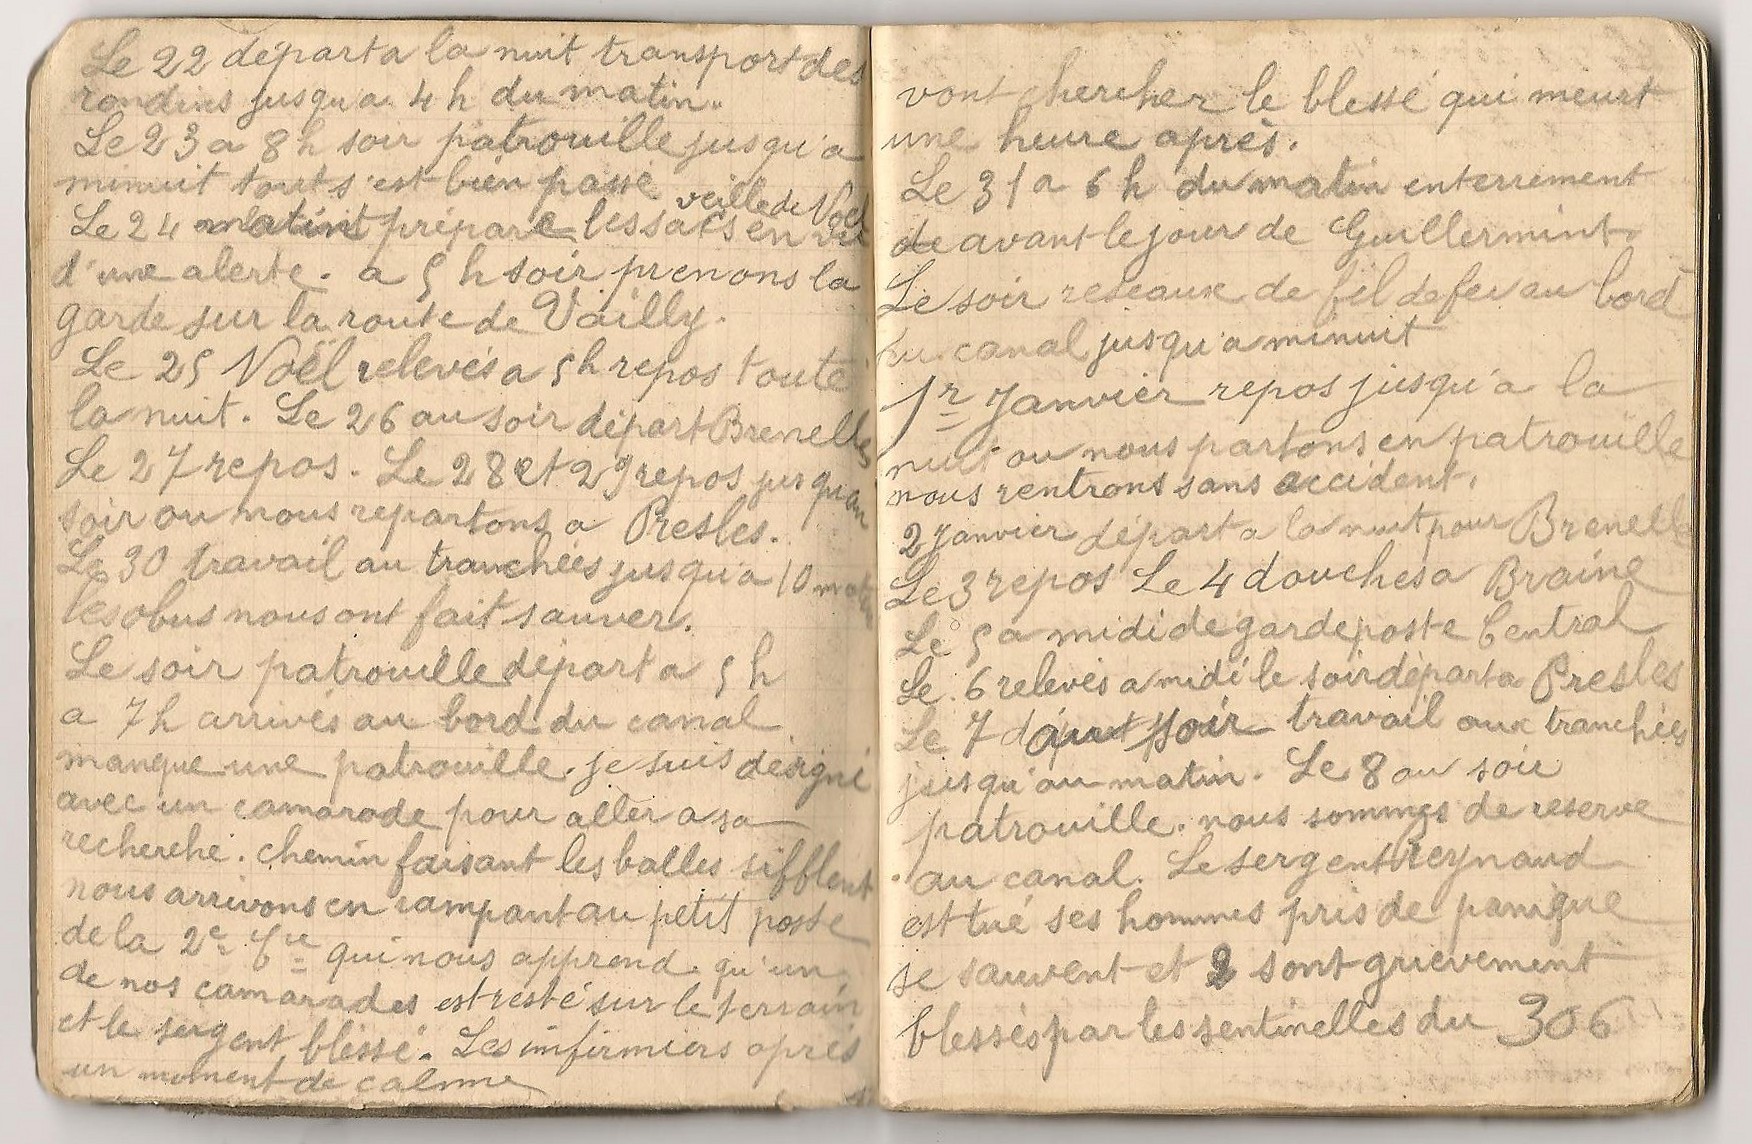 Le 22 départ a la nuit transport des
rondins jusqu'a 4 h du matin.
Le 23 a 8 h soir patrouille jusqu'a
minuit tout s'est bien passé
veille de Noël
Le 24 matin prépare les sacs en vue
d'une alerte. a 5 h soir prenons la
garde sur la route de Vailly.
Le 25 Noël relevés a 5 h repos toute
la nuit. Le 26 au soir départ Brenelle
Le 27 repos. Le 28 et 29 repos jusqu'au
soir ou nous repartons a Presles.
Le 30 travail au tranchées jusqu'a 10
les obus nous ont fait sauver.
Le soir patrouille départ a 5 h
a 7 h arrivés au bord du canal
manque une patrouille. je suis désigné
avec un camarade pour aller a sa
recherche. chemin faisant les balles sifflent
nous arrivons en rampant au petit poste
de la 2e Cie qui nous apprend qu'un
de nos camarades est resté sur le terrain
et le sergent blessé. Les infirmiers après
un moment de calme
vont chercher le blessé qui meurt
une heure après.
Le 31 a 6 h du matin enterrement
de avant le jour de Guillermint
Le soir reseaux de fil de fer au bord
du canal jusqu'a minuit
1r Janvier repos jusqu'a la
nuit ou nous partons en patrouille
nous rentrons sans accident.
2 Janvier départ a la nuit pour Brenelle
Le 3 repos Le 4 douches a Braine
Le 5 a midi de garde poste Central
Le 6 relevés a midi le soir départ a Presles
Le 7 soir travail aux tranchées
jusqu'au matin. Le 8 au soir
patrouille. nous sommes de reserve
au canal. Le sergent Reynaud
est tué ses hommes pris de panique
se sauvent et 2 sont grievement
blessés par les sentinelles du 306